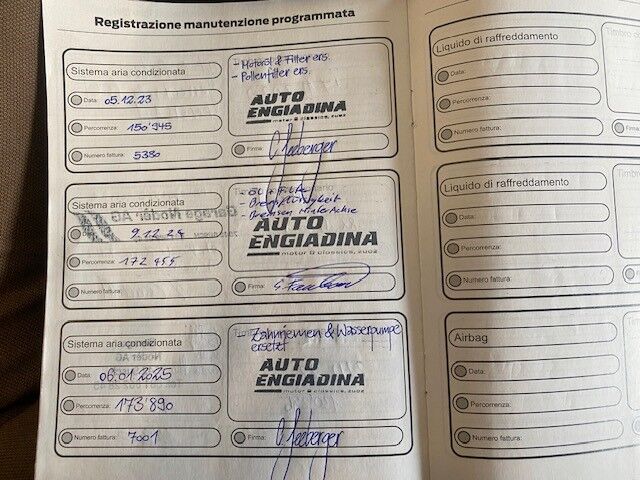 Registrazione manutenzione programmata
Sistema aria condizionata
Data: 05.12.23
Percorrenza: 150'945
Numero fattura: 5380
- Motoröl & Filter ers.
- Pollenfilter ers.
AUTO
ENGIADINA
motor & classics, 2002
Firma:
Sistema aria condizionata
9.12.24
Percorrenza: 172 455
Numero fattura:
- Öl + Filter
- Bremsflüssigkeit
- Bremsen Hinterachse
AUTO
ENGIADINA
motor & classics, 2002
Firma:
Sistema aria condizionata
Data: 06.01.2025
Percorrenza: 173'890
Numero fattura: 7001
- Zahnriemen & Wasserpumpe
ersetzt
AUTO
ENGIADINA
motor & classics, 2002
Firma:
Liquido di raffreddamento
Data:
Percorrenza:
Numero fattura:
Timbro
Firma:
Liquido di raffreddamento
Data:
Percorrenza:
Numero fattura:
Airbag
Data:
Percorrenza:
Numero fattura: